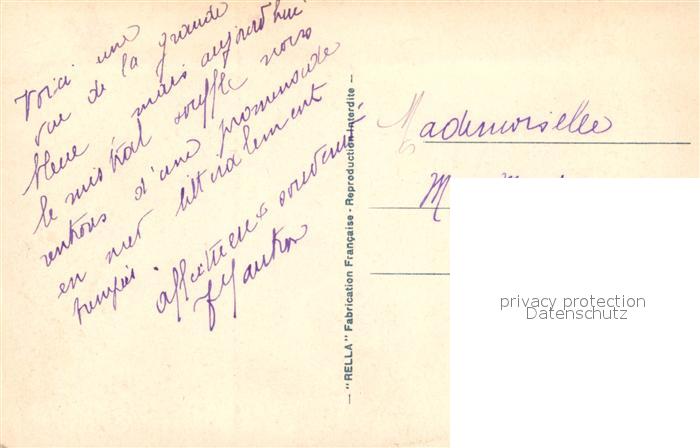 Voici une
vue de la grande
bleue mais aujourd'hui
le mistral souffle nous
rentrons d'une promenade
en mer littéralement
trempés
affectueux souvenir
— "RELLA" Fabrication Française - Reproduction Interdite —
Mademoiselle
privacy protection
Datenschutz